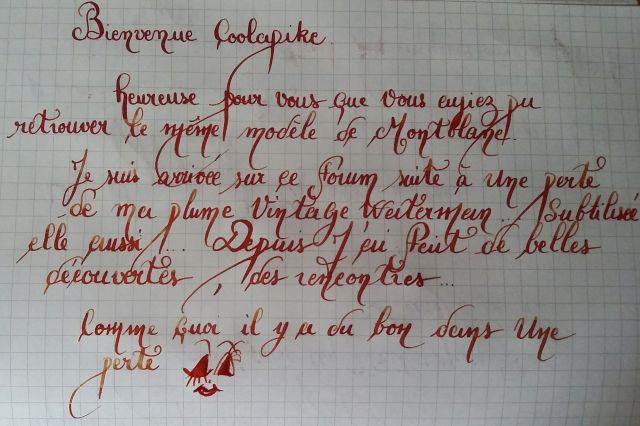 Bienvenue Coolapike
heureuse pour vous que vous ayiez pu
retrouver le même modèle de Montblanc.
Je suis arrivée sur ce forum suite à une perte
de ma plume Vintage Waterman... Subtilisée
elle aussi !... Depuis J'ai fait de belles
découvertes, des rencontres...
Comme quoi il y a du bon dans une
perte